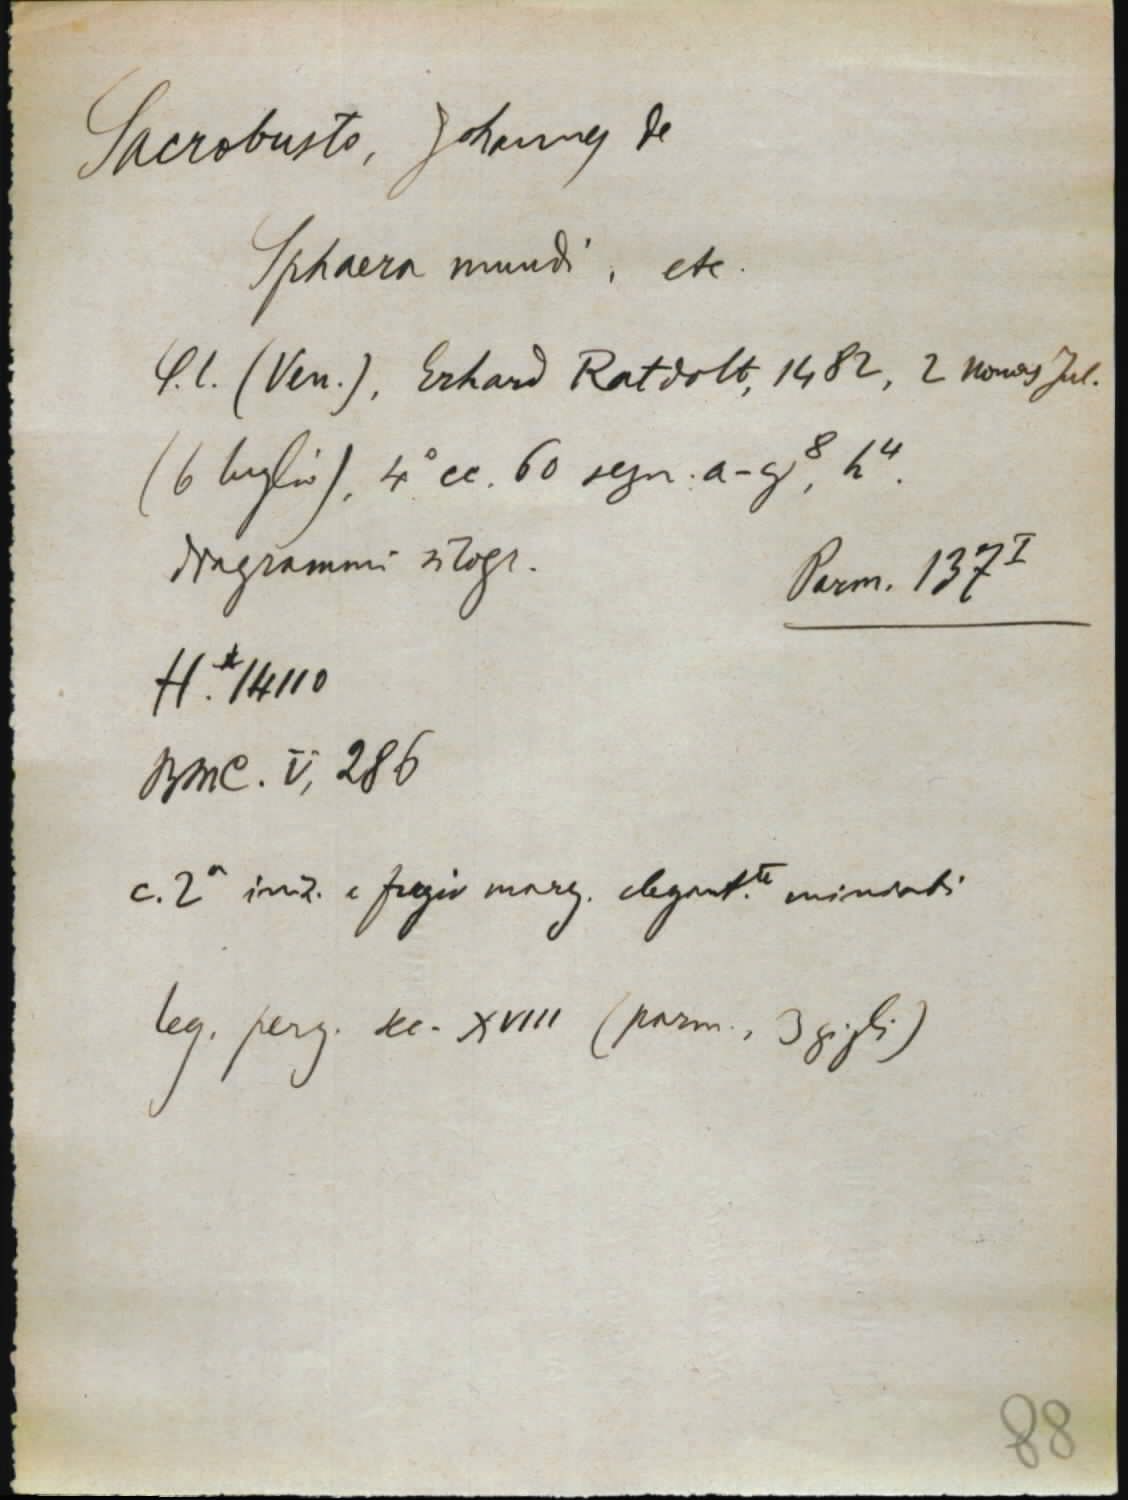 Sacrobusto, Johannes de
Sphaera mundi, etc.
S.l. (Ven.), Erhard Ratdolt, 1482, 2 nonas Jul.
(6 luglio), 4° cc. 60 segn. a-g⁸, h⁴.
diagrammi silogr.
Parm. 137ᴵ
H.*14110
BMC. V, 286
c. 2ᵃ iniz. e fregio marg. elegant.ᵗᵉ miniati
leg. perg. sec. XVIII (parm., 3 gigli)
88